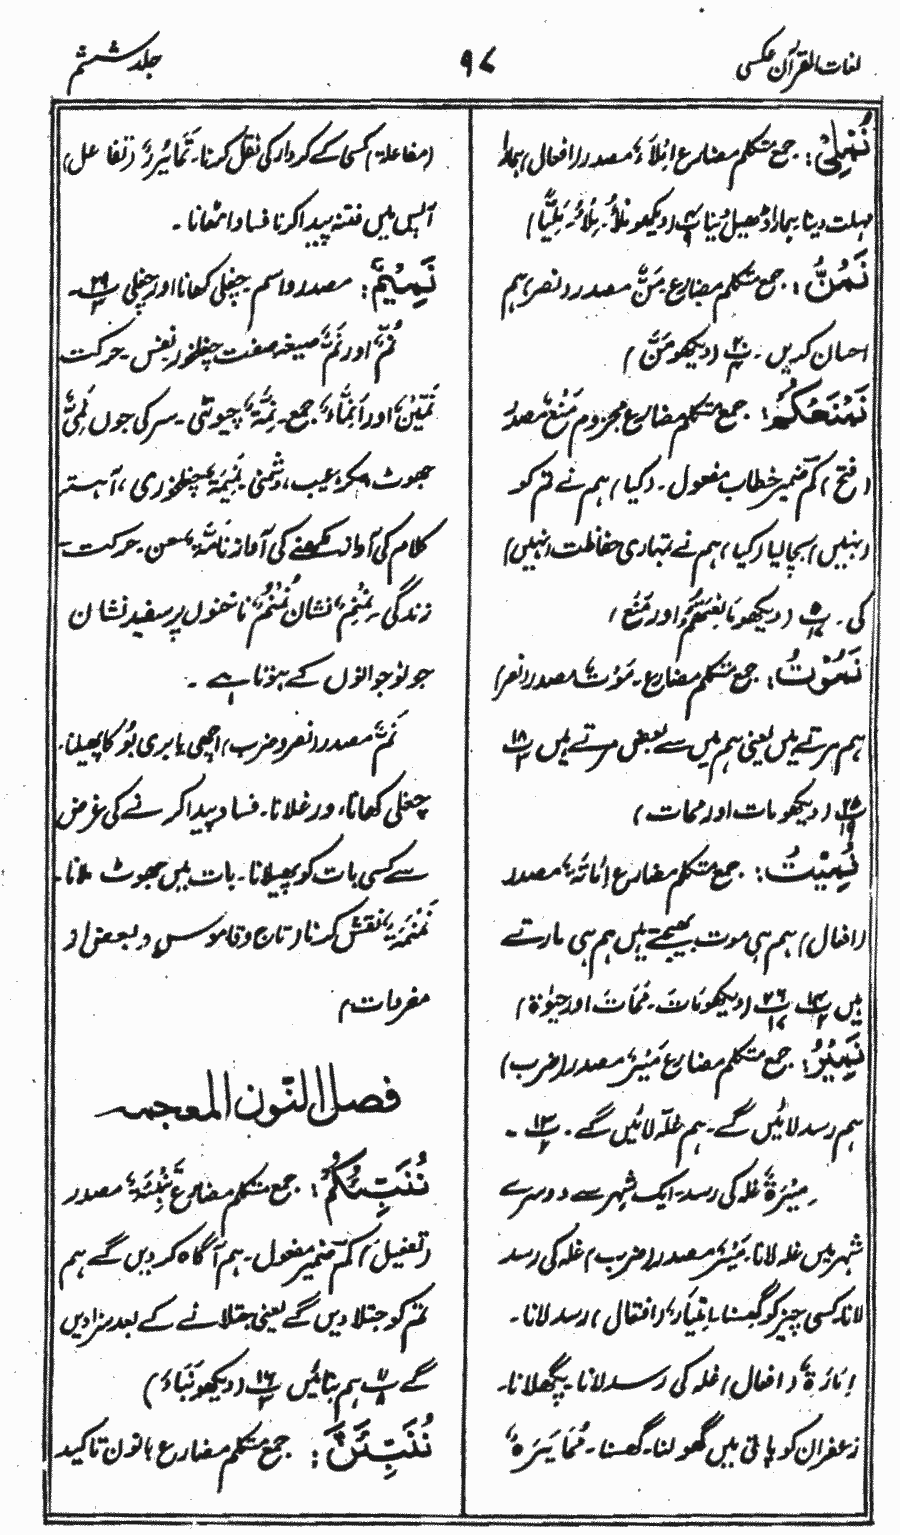 لغات القرآن عکسی
۹۷
جلد ششم
نُمْلِیْ: جمع متکلم مضارع اِمْلَاءٌ مصدر (افعال) ہمارا
مہلت دینا۔ ہمارا ڈھیل دینا پ۴ (دیکھو
نَمُنُّ: جمع متکلم مضارع مَنٌّ مصدر (نصر) ہم
احسان کریں۔ پ۲۰ (دیکھو مَنَّ)
جمع متکلم مضارع مجزوم مَنْعٌ مصدر
(فتح) کُمْ ضمیر خطاب مفعول۔ (کیا) ہم نے تم کو
(نہیں) بچا لیا (کیا) ہم نے تمہاری حفاظت (نہیں)
کی۔ پ۵ (دیکھو اور مَنْعٌ)
نَمُوْتُ: جمع متکلم مضارع۔ مَوْتٌ مصدر (نصر)
ہم مرتے ہیں یعنی ہم میں سے بعض مرتے ہیں پ۱۸
پ۲۵ (دیکھو مات اور ممات)
نُمِیْتُ: جمع متکلم مضارع اِمَاتَةٌ مصدر
(افعال) ہم ہی موت بھیجتے ہیں ہم ہی مارتے
ہیں پ۱۴ پ۲۶ (دیکھو مَاتَ۔ مَمَاتَ اور حیٰوة)
نَمِیْرُ: جمع متکلم مضارع مَیْرٌ مصدر (ضرب)
ہم رسد لائیں گے۔ ہم غلّہ لائیں گے۔ پ۱۳۔
مِیْرَةٌ غلہ کی رسد۔ ایک شہر سے دوسرے
شہر میں غلہ لانا۔ مَیْرٌ مصدر (ضرب) غلہ کی رسد
لانا۔ کسی چیز کو گھسنا۔ اِمْتِیَارٌ (افتعال) رسد لانا۔
اِمَارَةٌ (افعال) غلہ کی رسد لانا۔ پگھلانا۔
زعفران کو پانی میں گھولنا۔ گھسنا۔ مُمَایَرَةٌ
(مفاعلة) کسی کے کردار کی نقل کرنا۔ تَمَایُرٌ (تفاعل)
آپس میں فتنہ پیدا کرنا فساد اٹھانا۔
نَمِیْمٍ: مصدر و اسم۔ چغلی کھانا اور چغلی پ۲۹۔
نَمٌّ اور صیغہ صفت چغلخور۔ نفس۔ حرکت
اور اَنِمَّاءُ جمع۔ نِمَّةٌ چیونٹی۔ سر کی جوں
جھوٹ، مکر، عیب، دشمنی نَمِیْمَةٌ چغلخوری، آہستہ
کلام کی آواز۔ لکھنے کی آواز نَامَّةٌ حس۔ حرکت۔
زندگی۔ نشان ناخنوں پر سفید نشان
جو نوجوانوں کے ہوتا ہے۔
نَمٌّ مصدر (نصر و ضرب) اچھی یا بری بُو کا پھیلنا۔
چغلی کھانا، ورغلانا۔ فساد پیدا کرنے کی غرض
سے کسی بات کو پھیلانا۔ بات میں جھوٹ ملانا۔
نَمْنَمَةٌ نقش کرنا (تاج و قاموس و بعض از
مفردات)
فصل النّون المعجمہ
نُنَبِّئُکُمْ: جمع متکلم مضارع مصدر
(تفعیل) کُمْ ضمیر مفعول۔ ہم آگاہ کر دیں گے ہم
تم کو جتلا دیں گے یعنی جتلانے کے بعد سزا دیں
گے پ ہم بتائیں پ۱۶ (دیکھو نَبَاءٌ)
نُنَبِّئَنَّ: جمع متکلم مضارع بانون تاکید